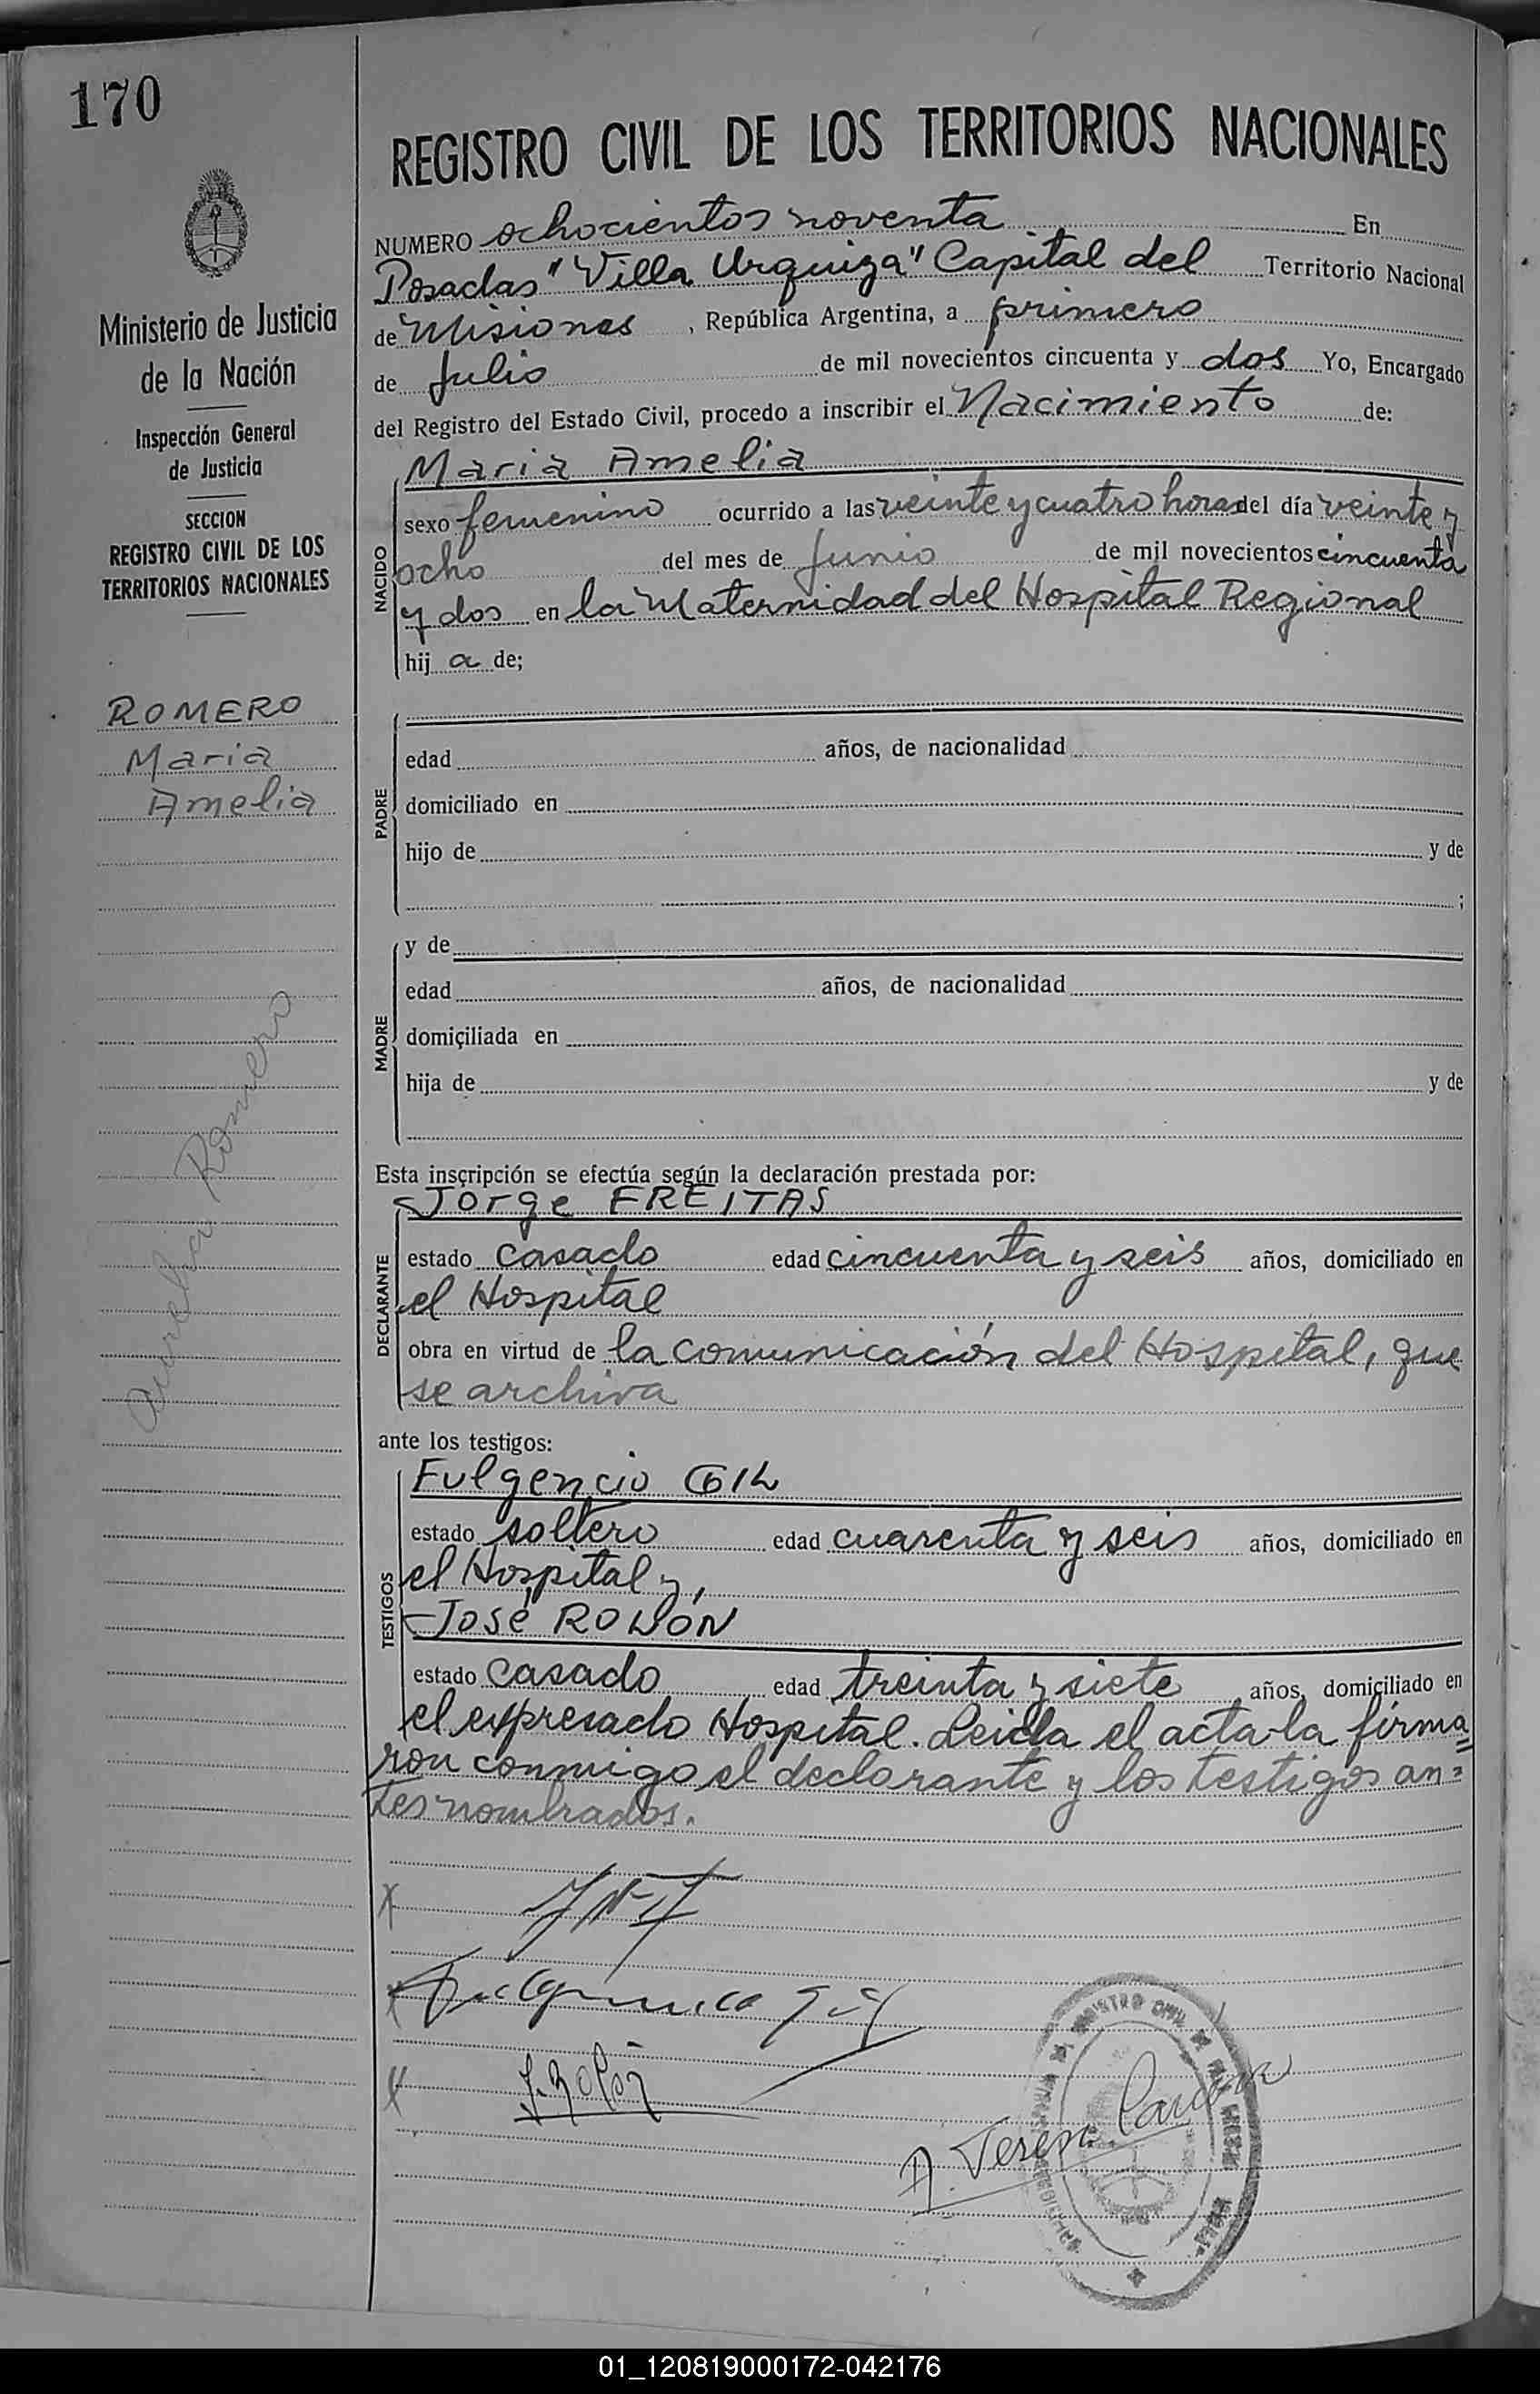 170
REGISTRO CIVIL DE LOS TERRITORIOS NACIONALES
Ministerio de Justicia
de la Nación
Inspección General
de Justicia
SECCION
REGISTRO CIVIL DE LOS
TERRITORIOS NACIONALES
ROMERO
Maria
Amelia
Aurelia Romero
NUMERO ochocientos noventa En
Posadas "Villa Urquiza" Capital del Territorio Nacional
de Misiones, República Argentina, a primero
de Julio de mil novecientos cincuenta y dos Yo, Encargado
del Registro del Estado Civil, procedo a inscribir el Nacimiento de:
Maria Amelia
NACIDO
sexo femenino ocurrido a las veinte y cuatro horas del día veinte y
ocho del mes de Junio de mil novecientos cincuenta
y dos en la Maternidad del Hospital Regional
hij a de;
PADRE
edad años, de nacionalidad
domiciliado en
hijo de y de
;
MADRE
y de
edad años, de nacionalidad
domiciliada en
hija de y de
Esta inscripción se efectúa según la declaración prestada por:
Jorge FREITAS
DECLARANTE
estado casado edad cincuenta y seis años, domiciliado en
el Hospital
obra en virtud de la comunicación del Hospital, que
se archiva
ante los testigos:
TESTIGOS
Fulgencio GIL
estado soltero edad cuarenta y seis años, domiciliado en
el Hospital y,
José ROLÓN
estado casado edad treinta y siete años, domiciliado en
el expresado Hospital. Leida el acta la firma=
ron conmigo el declarante y los testigos an=
tes nombrados.
X
X Fulgencio Gil
X J. Rolón
A. Teresa
REGISTRO CIVIL
01_120819000172-042176